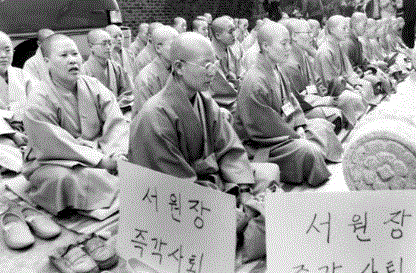 서원장
즉각사퇴
서원장
즉각사퇴